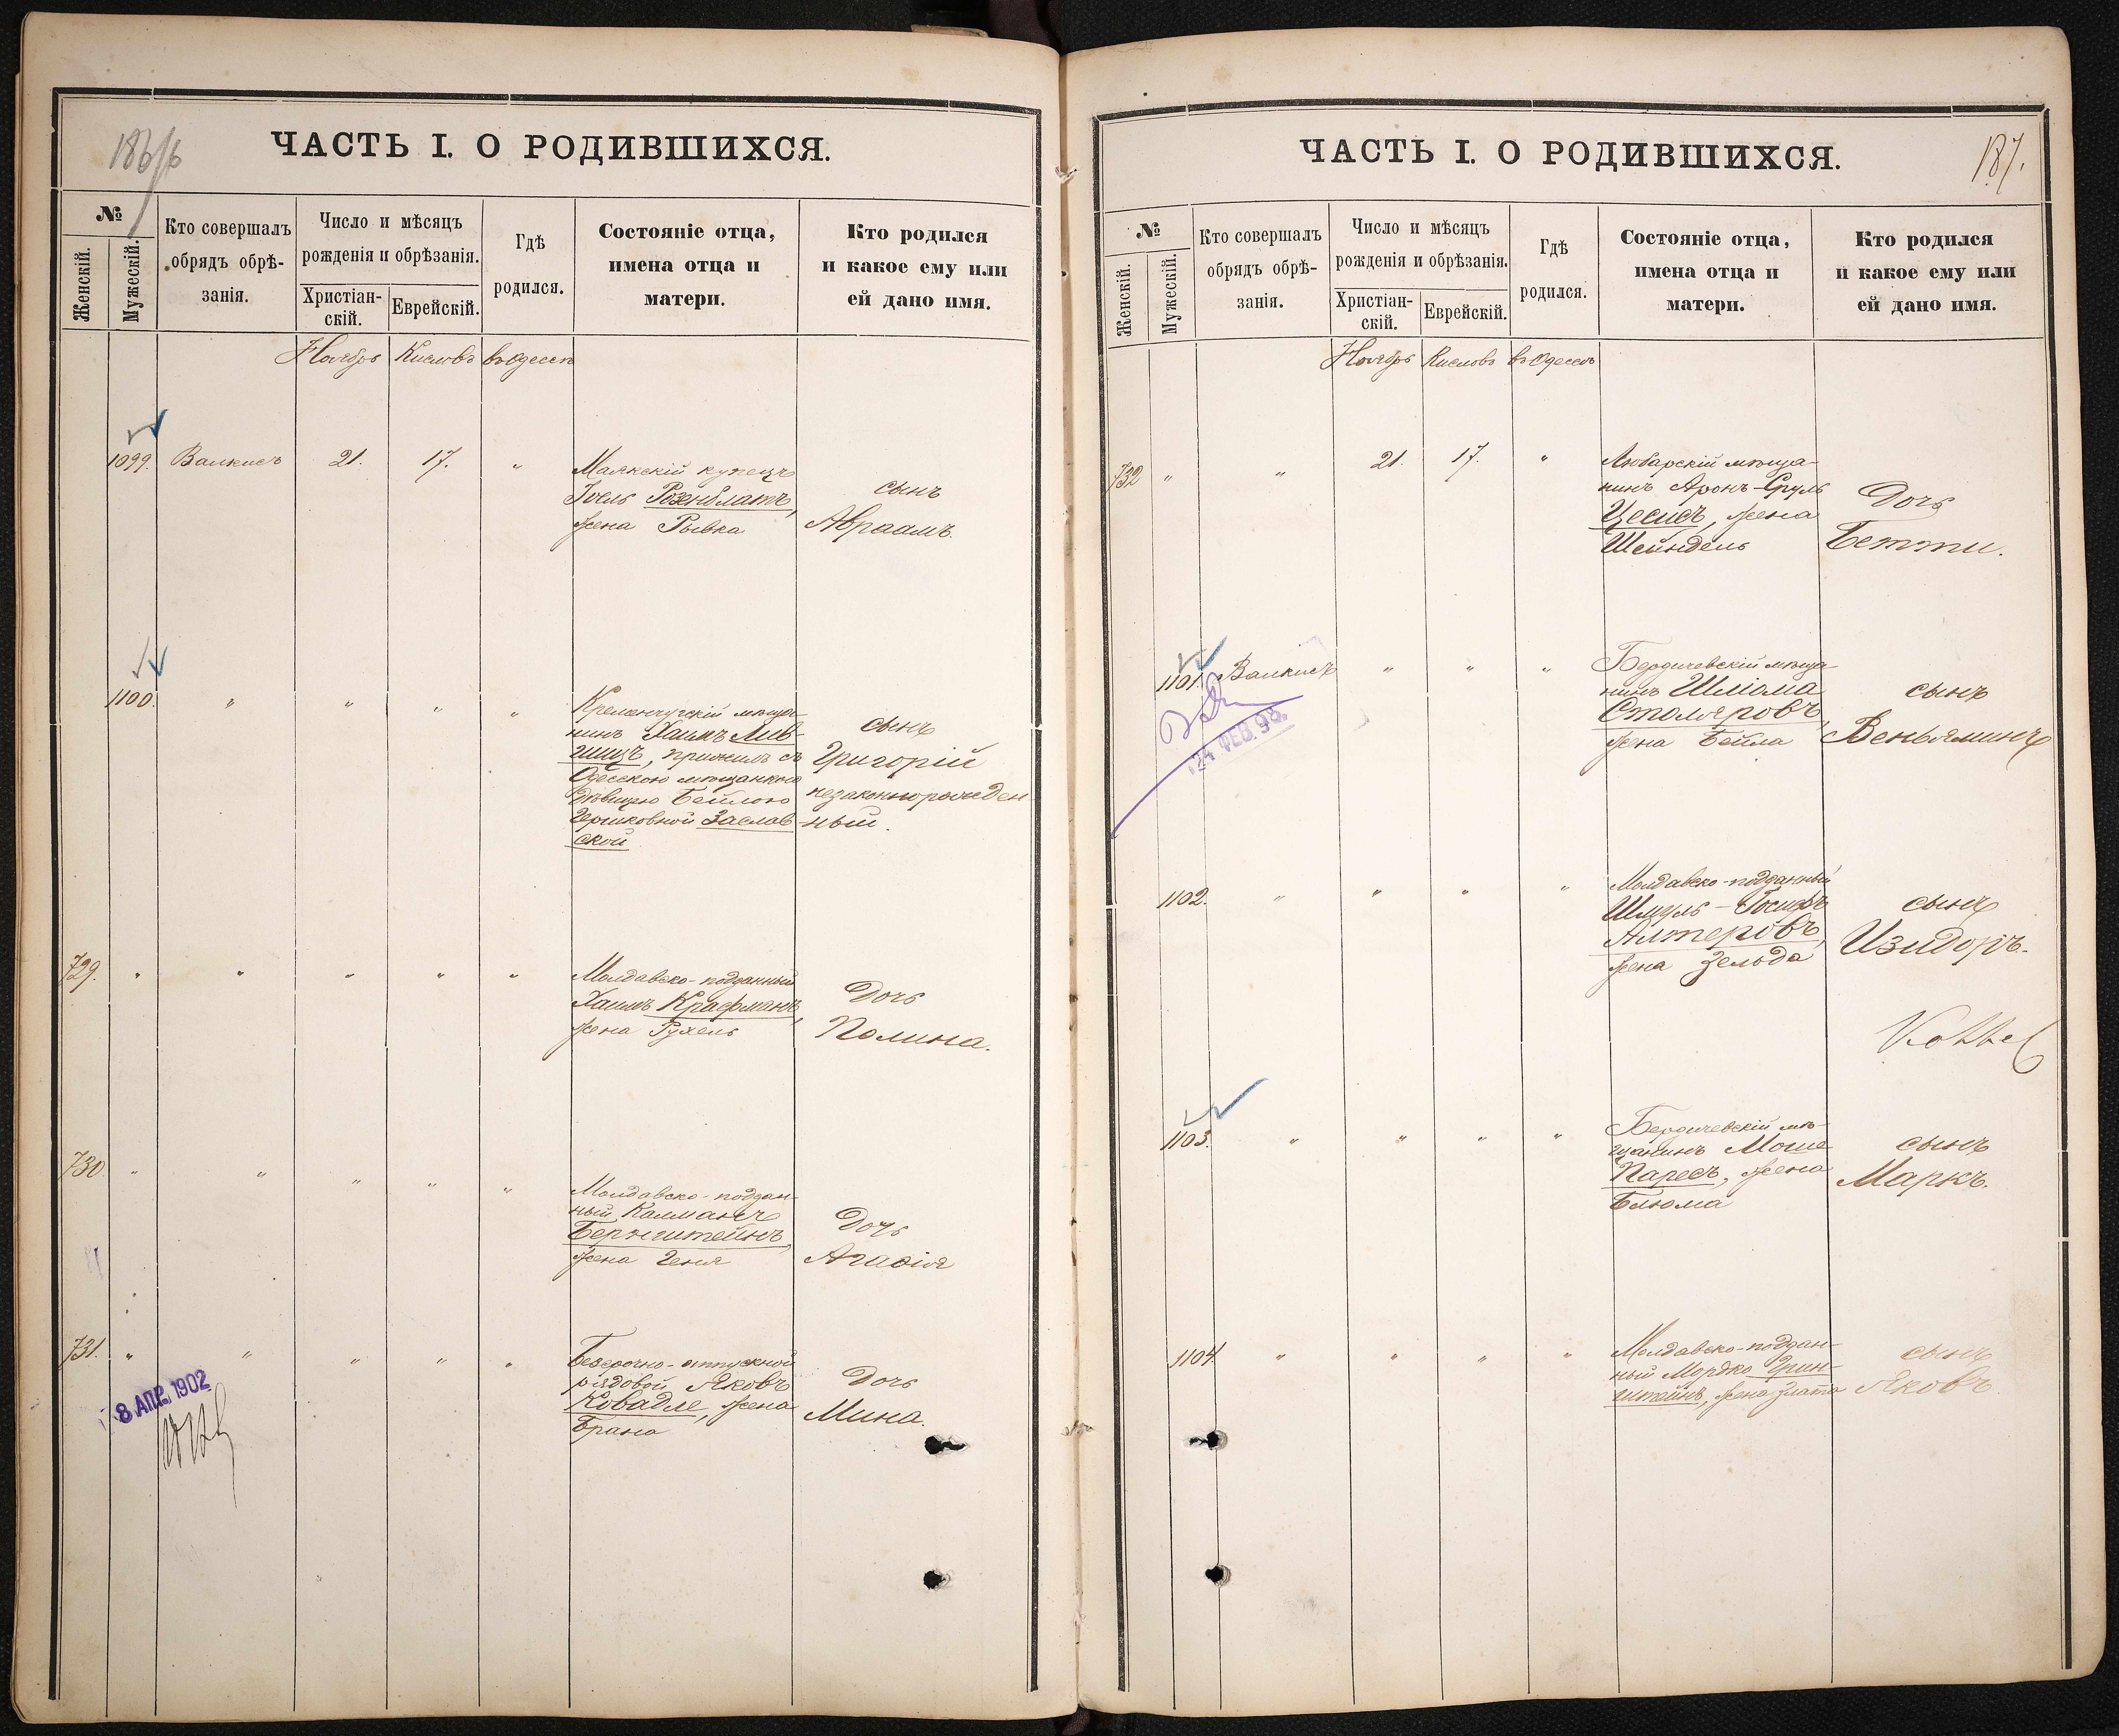 186
ЧАСТЬ I. О РОДИВШИХСЯ.
№
Женскій.
Мужескій.
Кто совершалъ
обрядъ обрѣ-
занія.
Число и мѣсяцъ
рожденія и обрѣзанія.
Христіан-
скій.
Еврейскій.
Гдѣ
родился.
Состояніе отца,
имена отца и
матери.
Кто родился
и какое ему или
ей дано имя.
Ноябрь Кислевъ въ Одессѣ
1099. Валкисъ 21. 17. "
Маякскій купецъ
Іоель Розенблатъ,
жена Рывка
сынъ
Авраамъ.
1100. " " " "
Кременчугскій мѣща-
нинъ Хаимъ Лив-
шицъ, прижилъ съ
Одесскою мѣщанкою
дѣвицею Бейлою
Гершковной Заслав
ской
сынъ
Григорій
незаконнорожден
ный.
729. " " " " "
Молдавско-подданный
Хаимъ Крафманъ,
жена Рухель
Дочь
Полина.
730. " " " " "
Молдавско-поддан-
ный Калманъ
Бернштейнъ,
жена Геня
Дочь
Агафія
731. " " " " "
Безсрочно-отпускной
рядовой Яковъ
Ковадле, жена
Брана
Дочь
Мина.
8 АПР. 1902
187.
ЧАСТЬ I. О РОДИВШИХСЯ.
№
Женскій.
Мужескій.
Кто совершалъ
обрядъ обрѣ-
занія.
Число и мѣсяцъ
рожденія и обрѣзанія.
Христіан-
скій.
Еврейскій.
Гдѣ
родился.
Состояніе отца,
имена отца и
матери.
Кто родился
и какое ему или
ей дано имя.
Ноябрь Кислевъ въ Одессѣ
732 " " 21. 17. "
Любарскій мѣща-
нинъ Аронъ-Сруль
Цесисъ, жена
Шейндель
Дочь
Бетти.
1101. Валкисъ " " "
Бердичевскій мѣща-
нинъ Шліома
Столяровъ,
жена Бейла
сынъ
Веньяминъ
24 ФЕВ. 98.
1102. " " " "
Молдавско-подданный
Шмуль-Іосифъ
Алтеровъ,
жена Зельда
сынъ
Изидоръ.
1103. " " " "
Бердичевскій мѣ-
щанинъ Моше
Паресъ, жена
Блюма
сынъ
Маркъ.
1104. " " " "
Молдавско-поддан-
ный Мордко Грин-
штейнъ, жена Злата
сынъ
Яковъ.